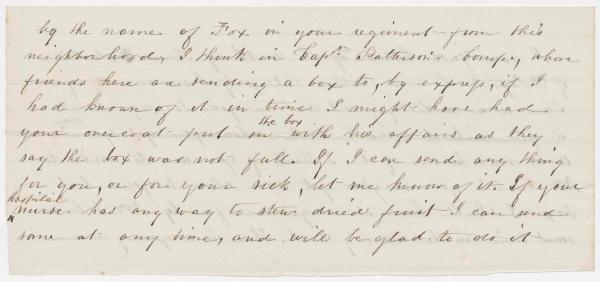 by the name of Fox in your regiment from this
neighborhood, I think in Capt. Patterson's Comp., whom
friends here are sending a box to, by express, if I
had known of it in time I might have had
the box
your overcoat put in with his affairs as they
say the box was not full. If I can send any thing
for you, or for your sick, let me know of it. If your
hospital
nurse has any way to stew dried fruit I can send
some at any time, and will be glad to do it